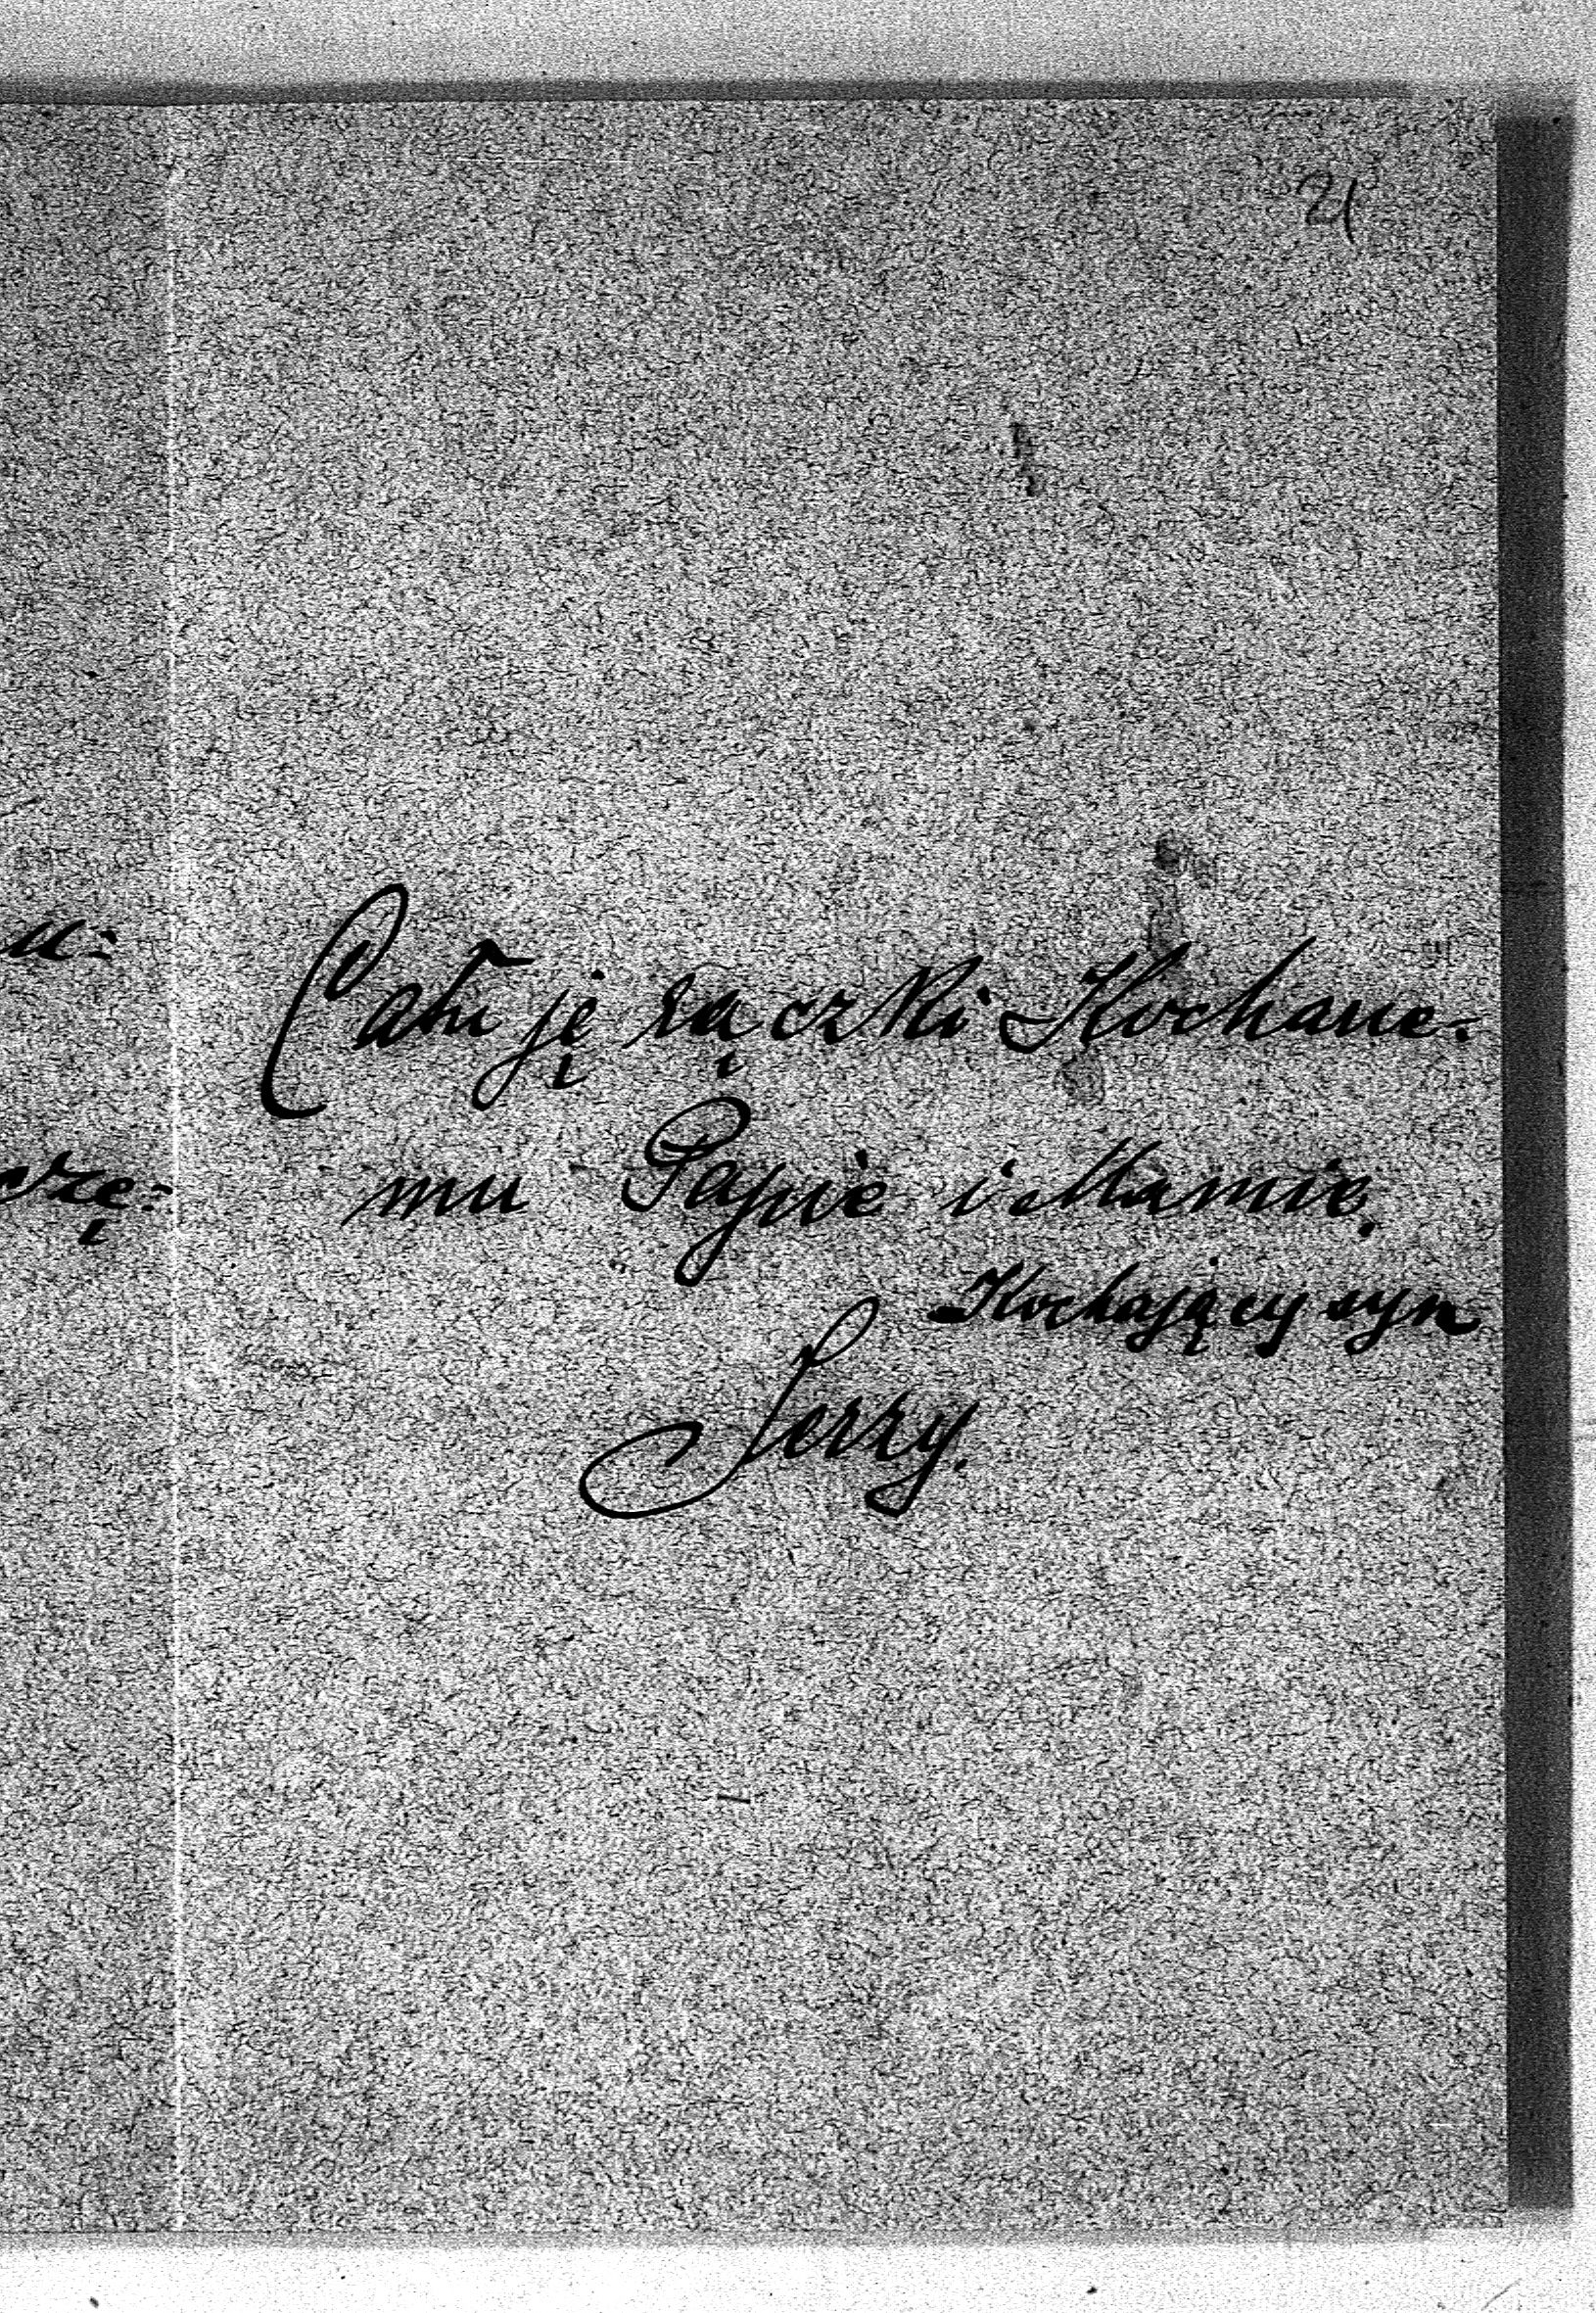 21
Całuję rączki Kochane-
mu Papie i Mamie.
Kochający syn
Jerzy.